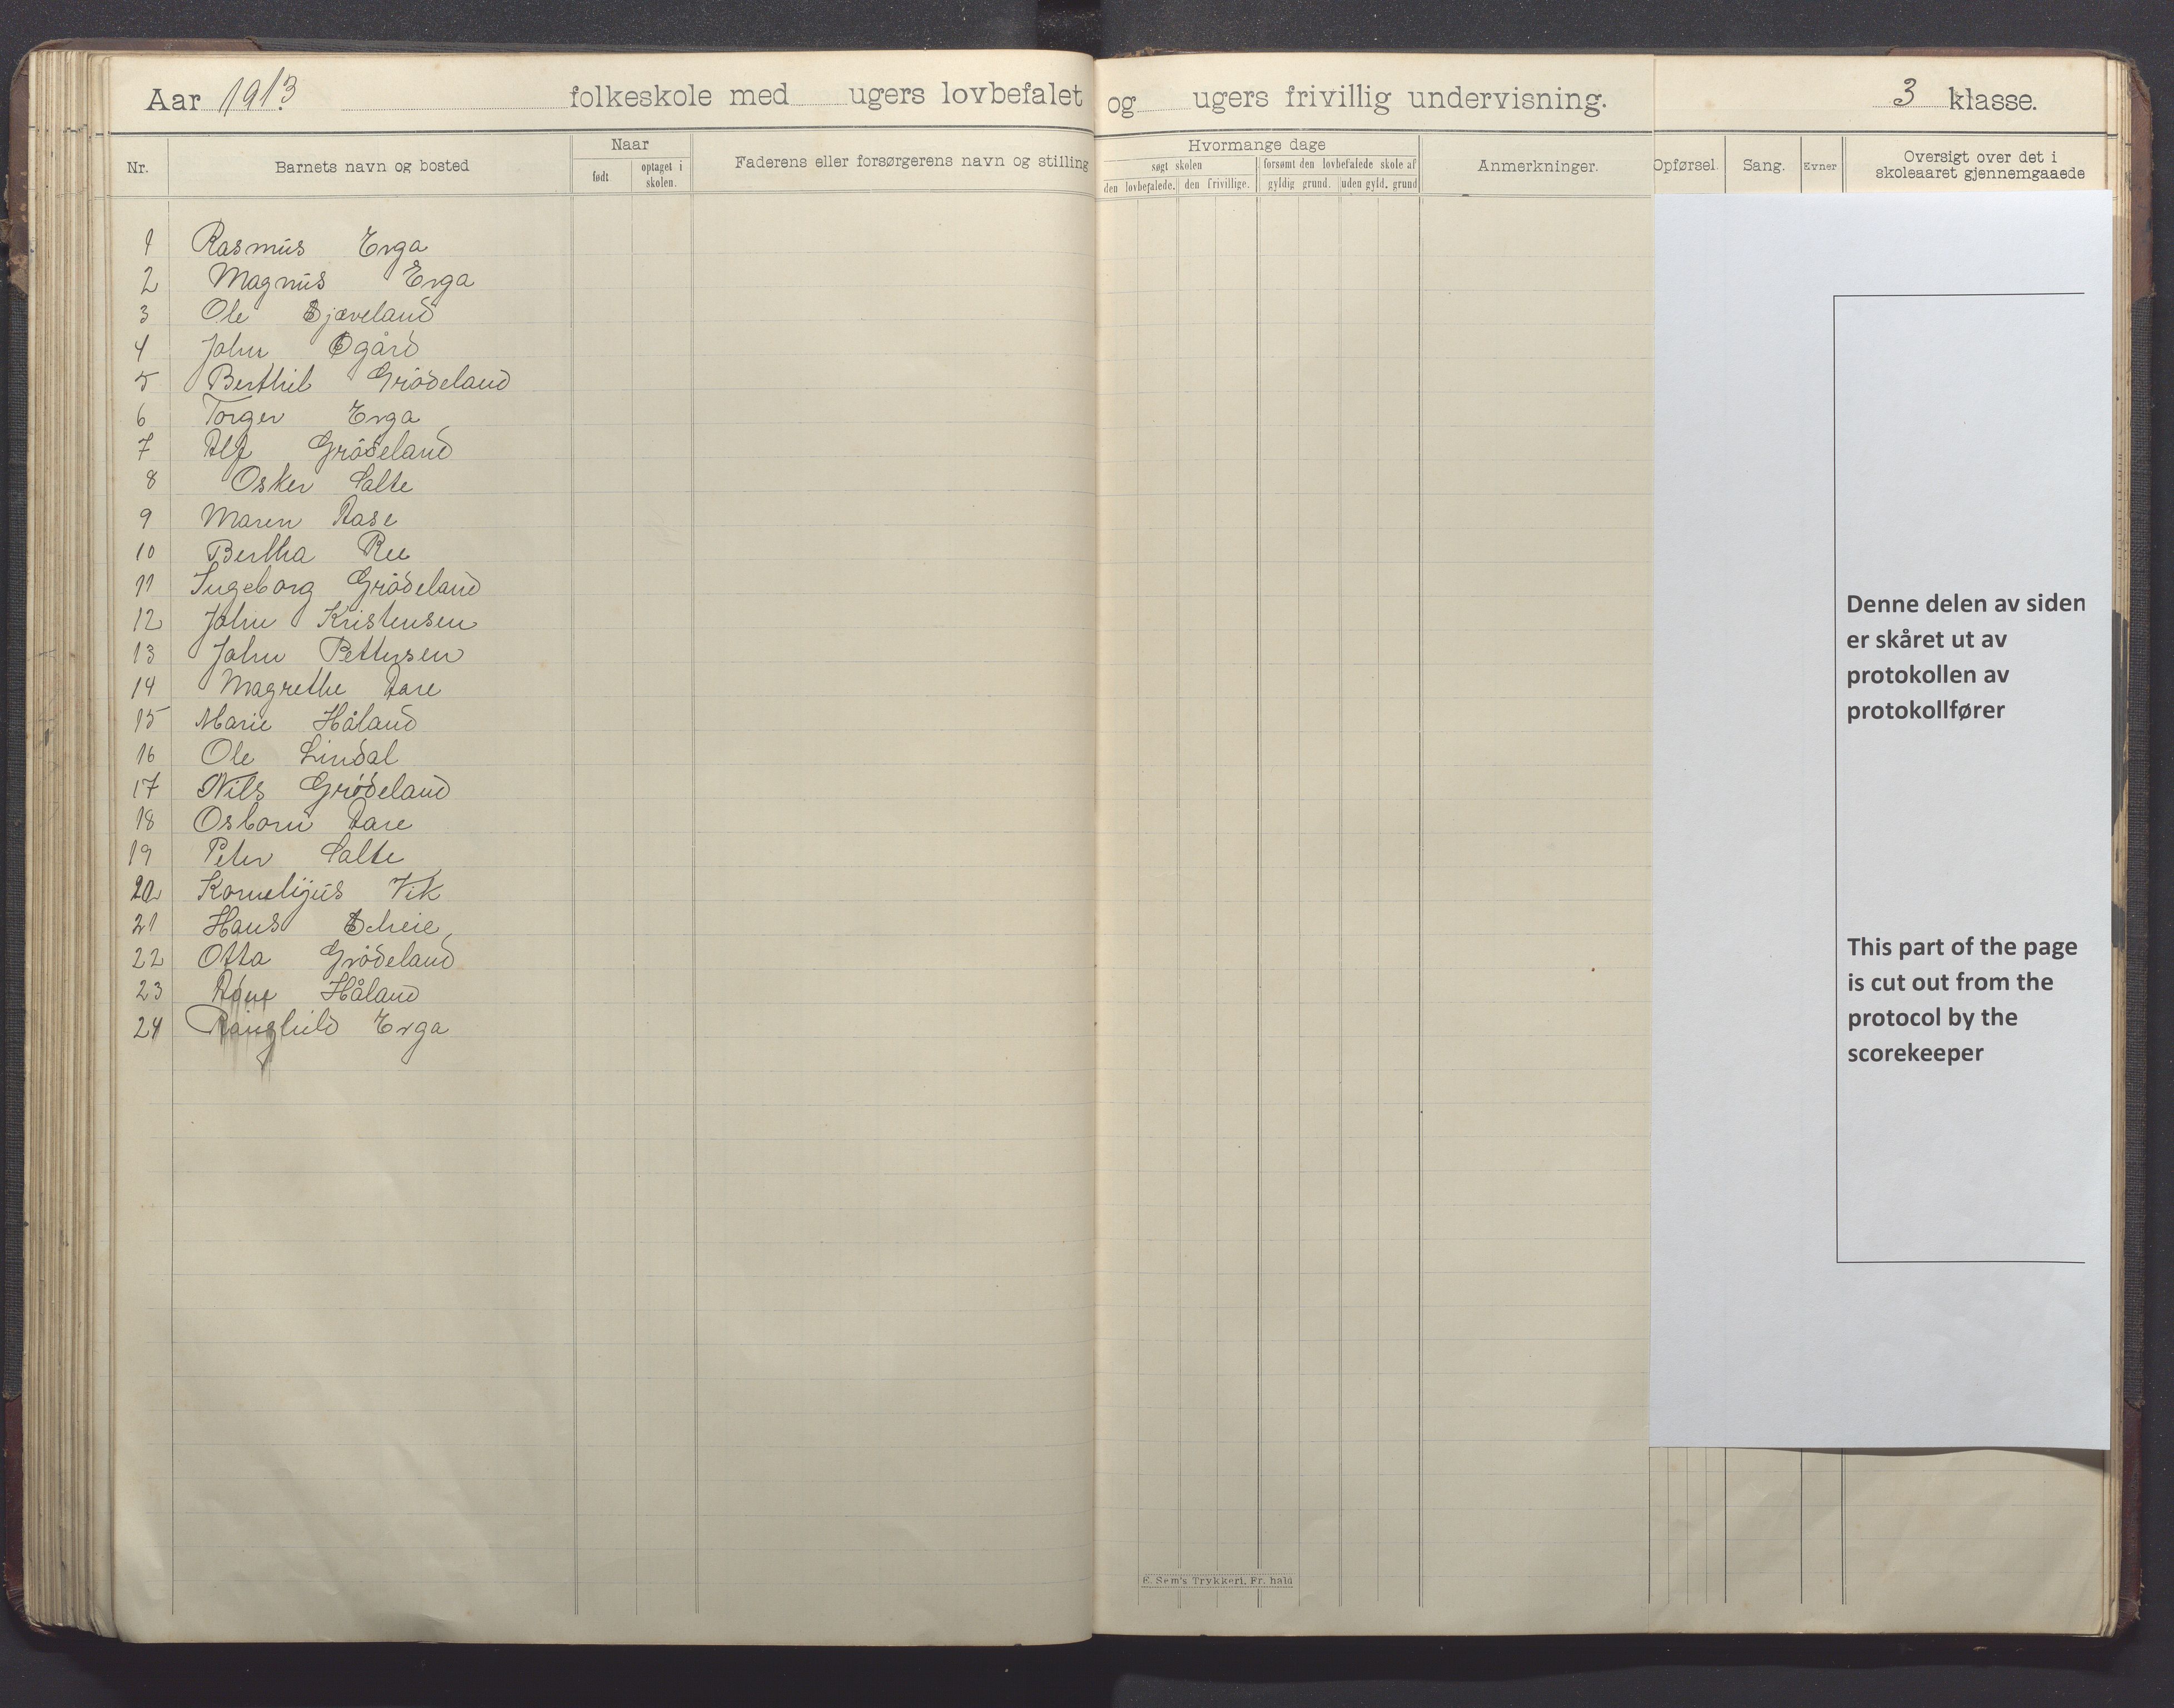 Aar 1913 folkeskole med ugers lovbefalet og ugers frivillig undervisning. 3 klasse.
Nr. Barnets navn og bosted Naar født optaget i skolen. Faderens eller forsørgerens navn og stilling Hvormange dage søgt skolen den lovbefalede. den frivillige. forsømt den lovbefalede skole af gyldig grund. uden gyld. grund Anmerkninger. Opførsel. Sang. Evner Oversigt over det i skoleaaret gjennemgaaede
1 Rasmus Erga
2 Magnus Erga
3 Ole Bjæveland
4 John Ogård
5 Berthil Grödeland
6 Torger Erga
7 Alf Grödeland
8 Osker Salte
9 Maren Aase
10 Bertha Ree
11 Ingeborg Grödeland
12 John Kristensen
13 John Pettersen
14 Magrethe Aare
15 Marie Håland
16 Ole Lindal
17 Nils Grödeland
18 Osborn Aare
19 Peter Salte
20 Kornelijus Vik
21 Hans Scheie
22 Otta Grödeland
23 Håland
24 Ranghild Erga
Denne delen av siden
er skåret ut av
protokollen av
protokollfører
This part of the page
is cut out from the
protocol by the
scorekeeper
E. Sem's Trykkeri, Fr. hald